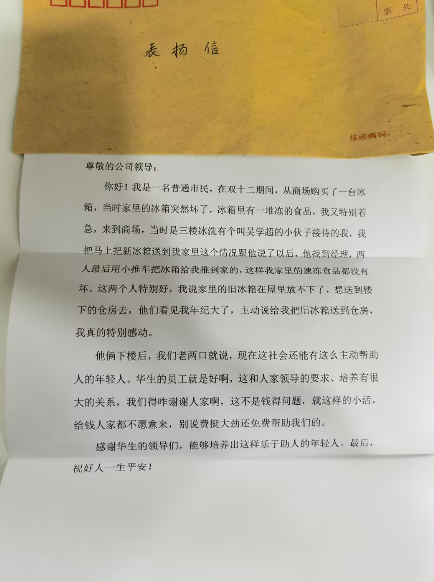 表扬信
邮政编码:
尊敬的公司领导:
你好!我是一名普通市民,在双十二期间,从商场购买了一台冰
箱,当时家里的冰箱突然坏了,冰箱里有一堆冻的食品,我又特别着
急,来到商场,当时是三楼冰洗有个叫吴学超的小伙子接待的我,我
把马上把新冰箱送到我家里这个情况跟他说了以后,他找到经理,两
人最后用小推车把冰箱给我推到家的,这样我家里的速冻食品都没有
坏。这两个人特别好,我说家里的旧冰箱在屋里放不下了,想送到楼
下的仓房去,他们看见我年纪大了,主动说给我把旧冰箱送到仓房,
我真的特别感动。
他俩下楼后,我们老两口就说,现在这社会还能有这么主动帮助
人的年轻人。华生的员工就是好啊,这和人家领导的要求、培养有很
大的关系,我们得咋谢谢人家啊,这不是钱得问题,就这样的小活,
给钱人家都不愿意来,别说费挺大劲还免费帮助我们的。
感谢华生的领导们,能够培养出这样乐于助人的年轻人。最后,
祝好人一生平安!